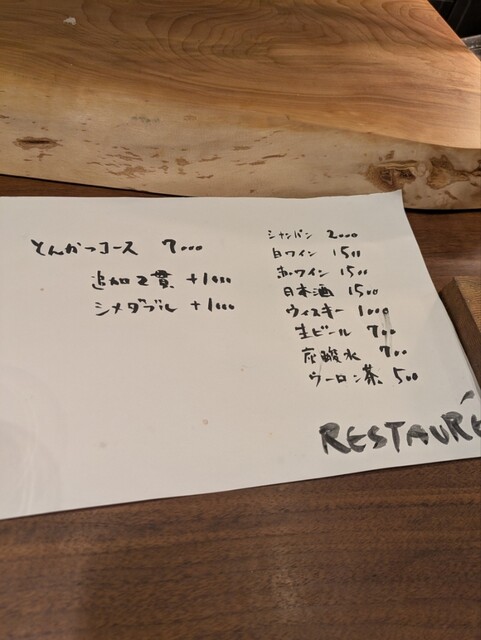 とんかつコース 7000
追加2貫 +1000
シメダブル +1000
シャンパン 2000
白ワイン 1500
赤ワイン 1500
日本酒 1500
ウィスキー 1000
生ビール 700
炭酸水 700
ウーロン茶 500
RESTAURÉ